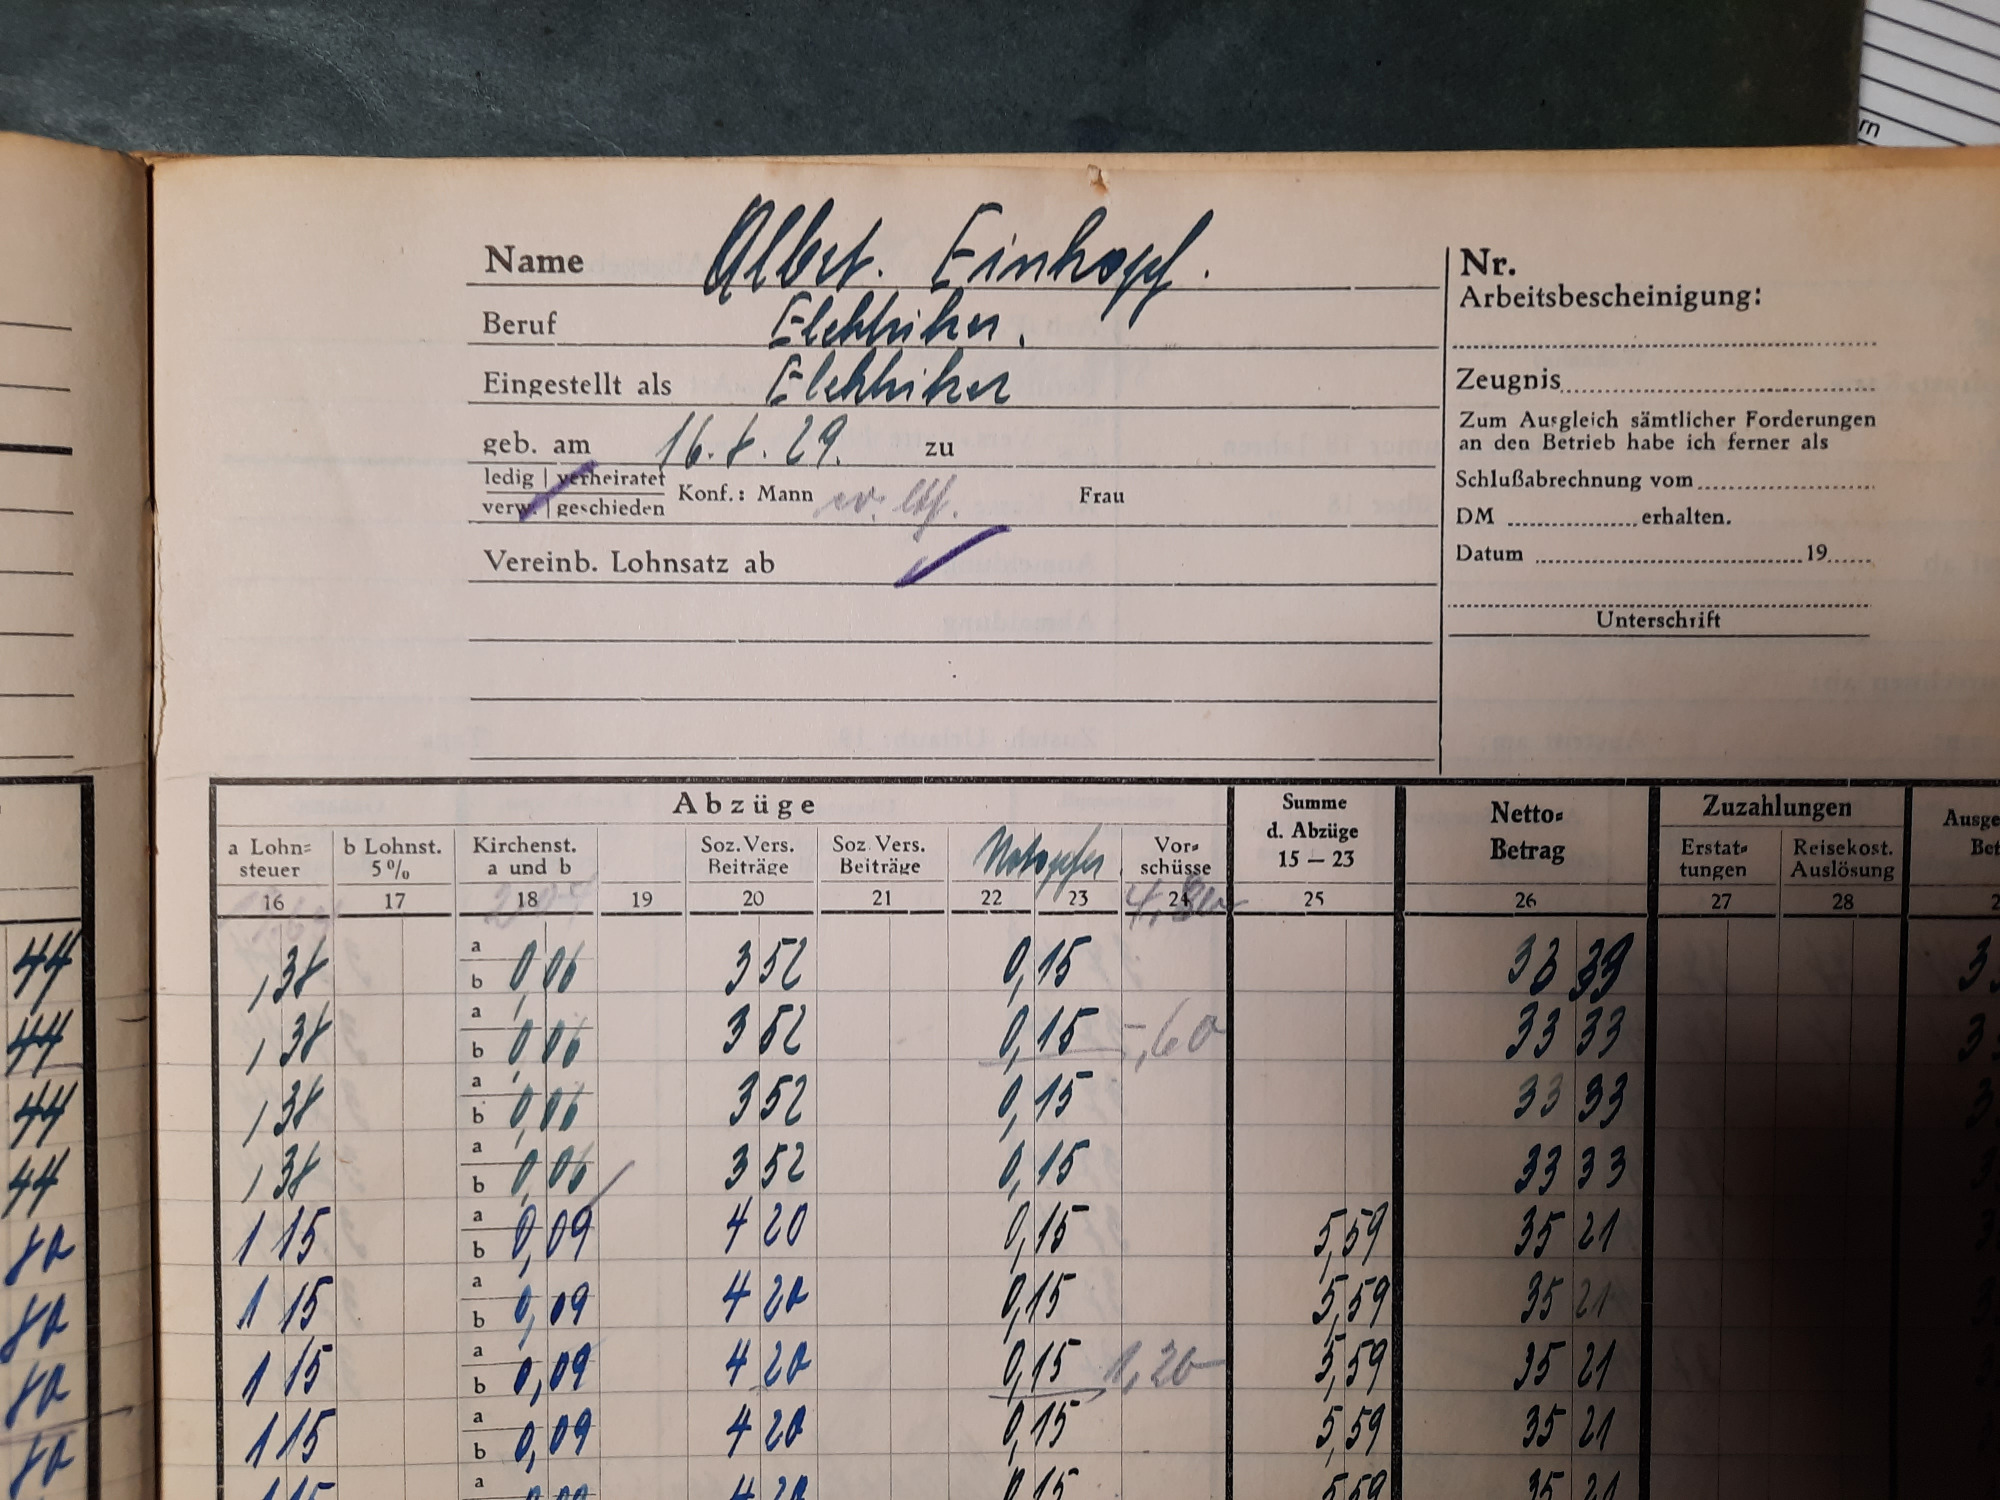 rn
Name Albert. Einkopf.
Beruf Elektriker.
Eingestellt als Elektriker
geb. am 16.8.29. zu
ledig | verheiratet
verw. | geschieden
Konf.: Mann ev. Frau
Vereinb. Lohnsatz ab
Nr.
Arbeitsbescheinigung:
Zeugnis
Zum Ausgleich sämtlicher Forderungen
an den Betrieb habe ich ferner als
Schlußabrechnung vom
DM erhalten.
Datum 19
Unterschrift
Abzüge
Summe
d. Abzüge
15 — 23
Netto=
Betrag
Zuzahlungen
Ausge
Bet
a Lohn=
steuer
b Lohnst.
5%
Kirchenst.
a und b
Soz. Vers.
Beiträge
Soz. Vers.
Beiträge
Notopfer
Vor=
schüsse
Erstat=
tungen
Reisekost.
Auslösung
16 17 18 19 20 21 22 23 24 25 26 27 28 2
44 ,38 a b 0,06 3 52 0,15 33 39 3
44 ,38 a b 0,06 3 52 0,15 -,60 33 33 3
44 ,38 a b 0,06 3 52 0,15 33 33
44 ,38 a b 0,06 3 52 0,15 33 33
80 1 15 a b 0,09 4 20 0,15 5,59 35 21
80 1 15 a b 0,09 4 20 0,15 5,59 35 21
80 1 15 a b 0,09 4 20 0,15 1,20 5,59 35 21
80 1 15 a b 0,09 4 20 0,15 5,59 35 21
1 15 a 0,09 4 20 0,15 5,59 35 21